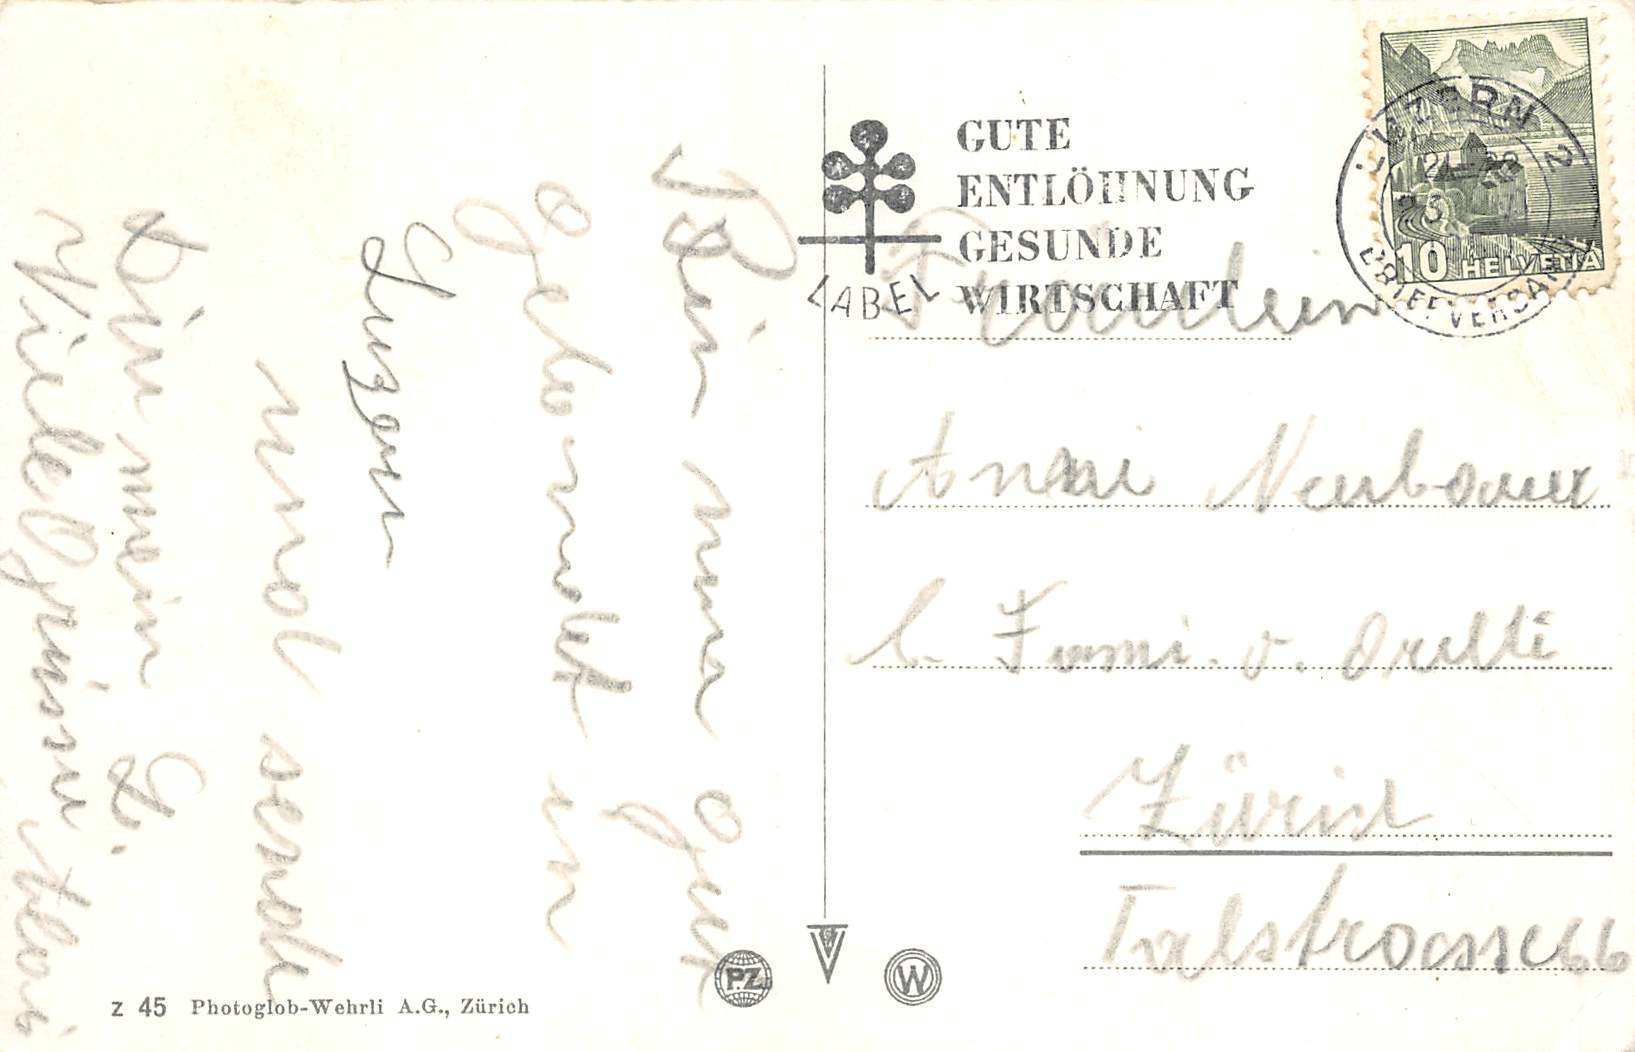 Bin nun gut
Gelandet in
Luzern
und sende
Dir mein L.
Viele Grüsse Alois
GUTE
ENTLÖHNUNG
GESUNDE
WIRTSCHAFT
LABEL
LUZERN 2
BRIEFVERSAND
10 HELVETIA
Fräulein
Anni Neubauer
b. Fami. v. Orelli
Zürich
Talstrasse 66
PZ
W
Z 45 Photoglob-Wehrli A.G., Zürich